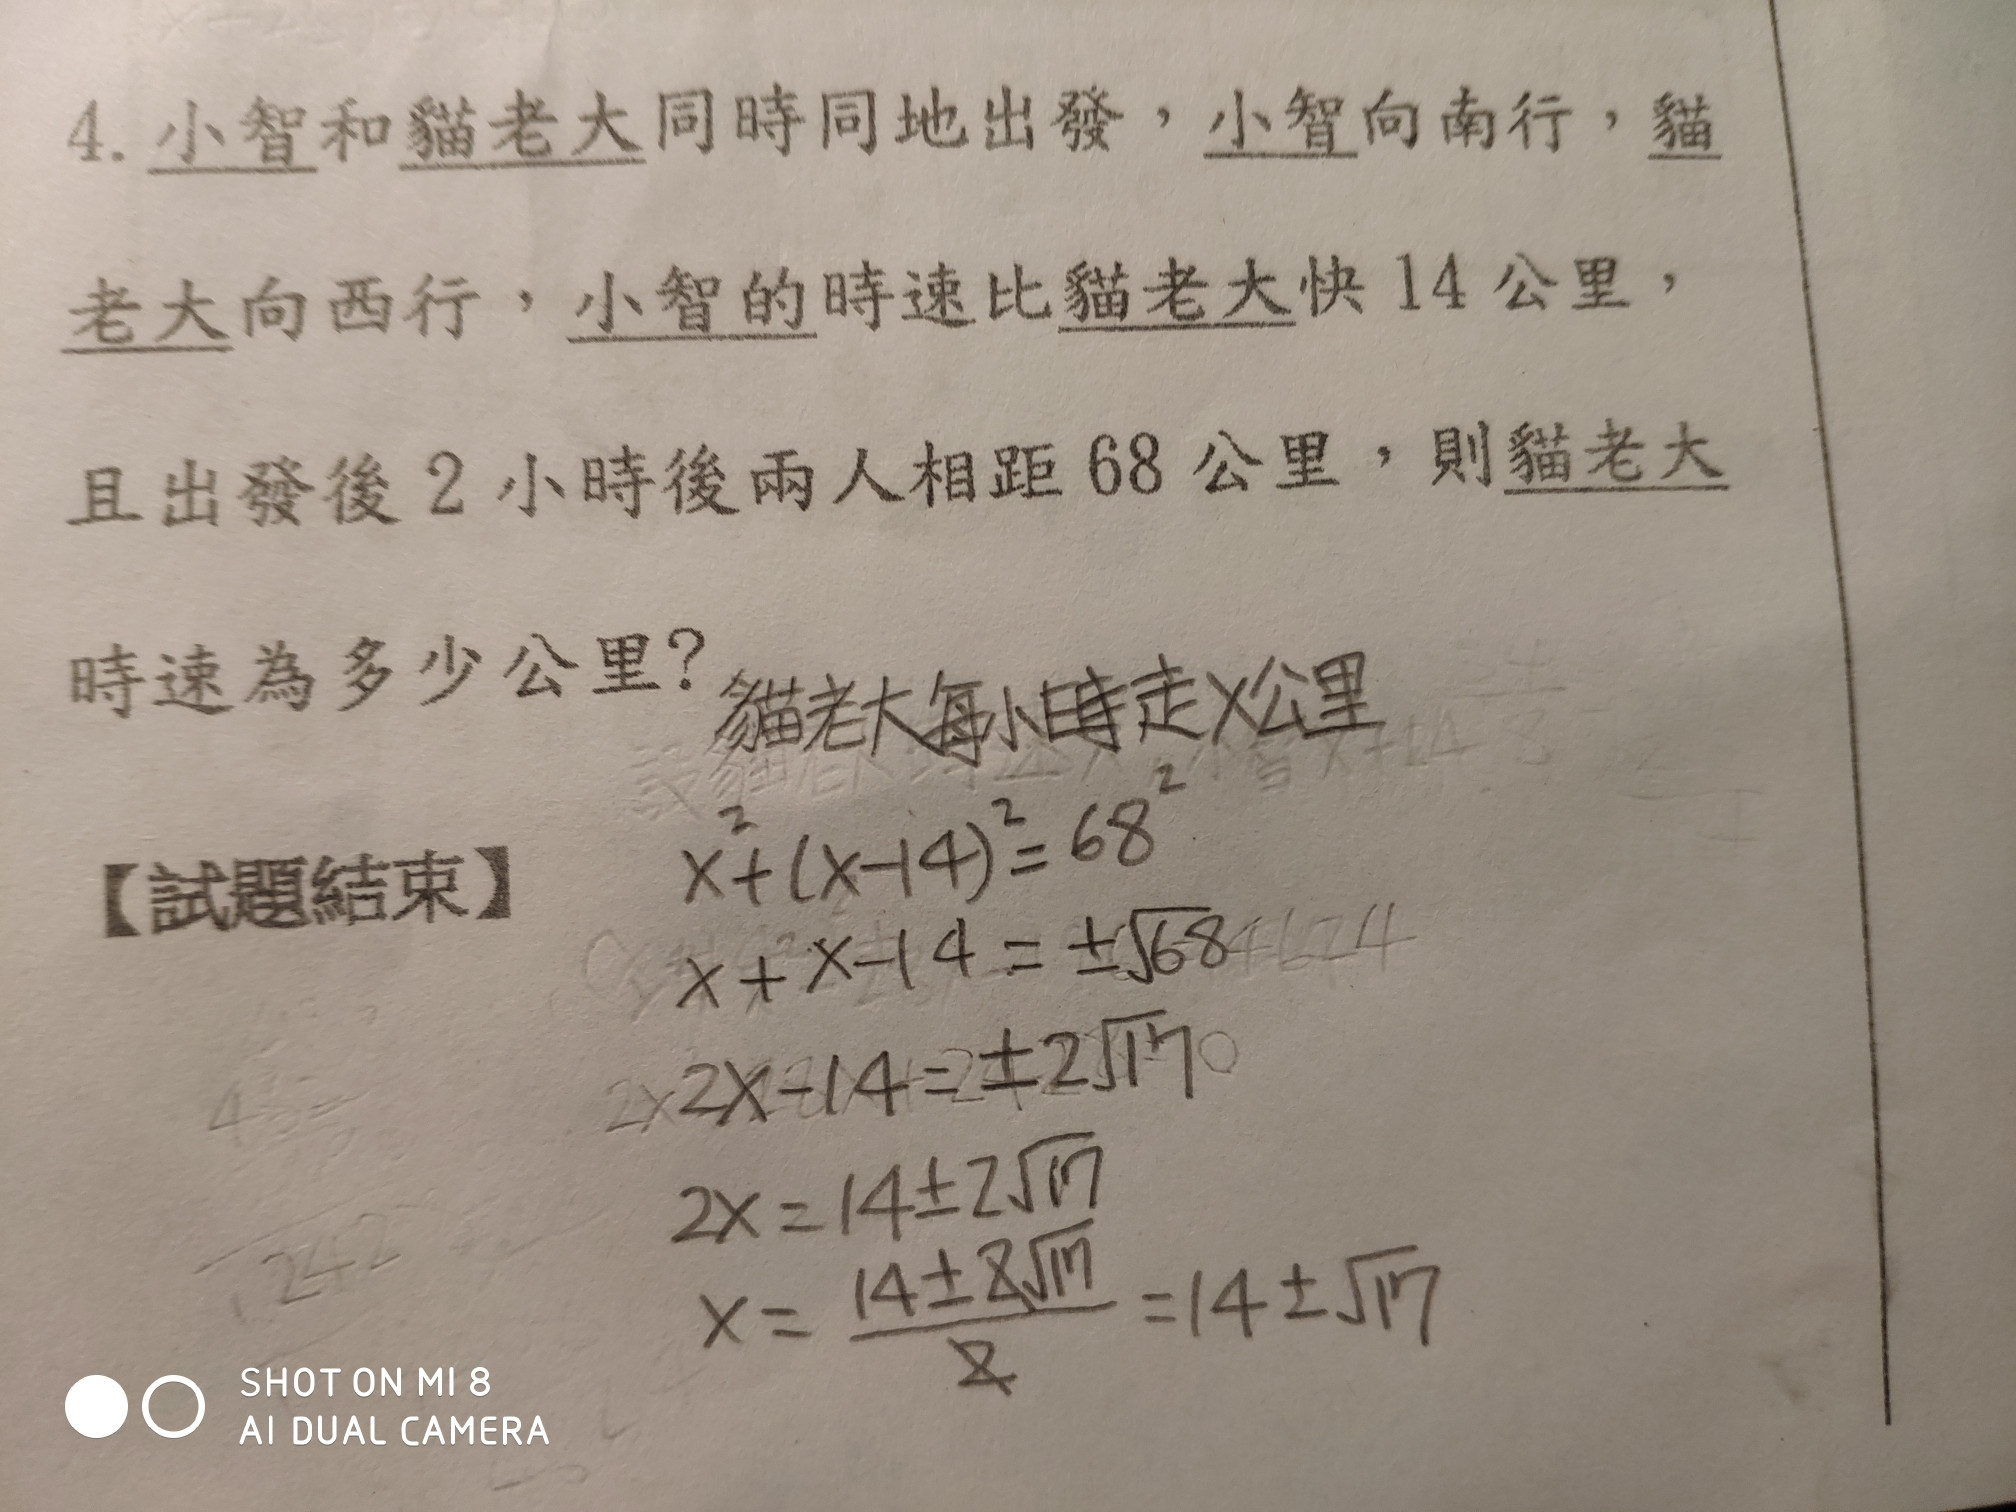 4. 小智和貓老大同時同地出發，小智向南行，貓
老大向西行，小智的時速比貓老大快 14 公里，
且出發後 2 小時後兩人相距 68 公里，則貓老大
時速為多少公里？
貓老大每小時走x公里
【試題結束】
x²+(x-14)²=68²
x+x-14=±√68
2x-14=±2√17
2x=14±2√17
x=(14±2√17)/2=14±√17
SHOT ON MI 8
AI DUAL CAMERA